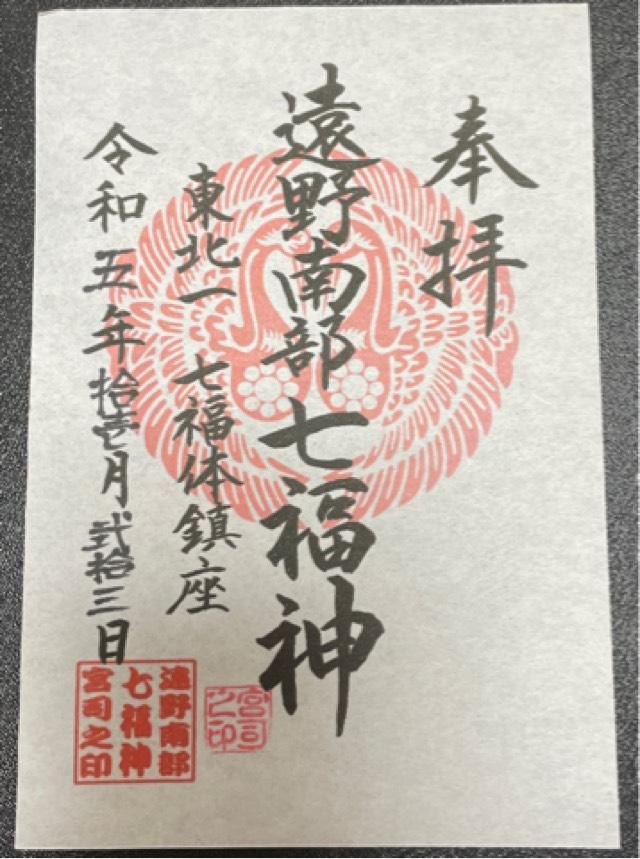 奉拝
遠野南部七福神
東北一 七福体鎮座
令和五年拾壱月弐拾三日
宮司之印
遠野南部
七福神
宮司之印